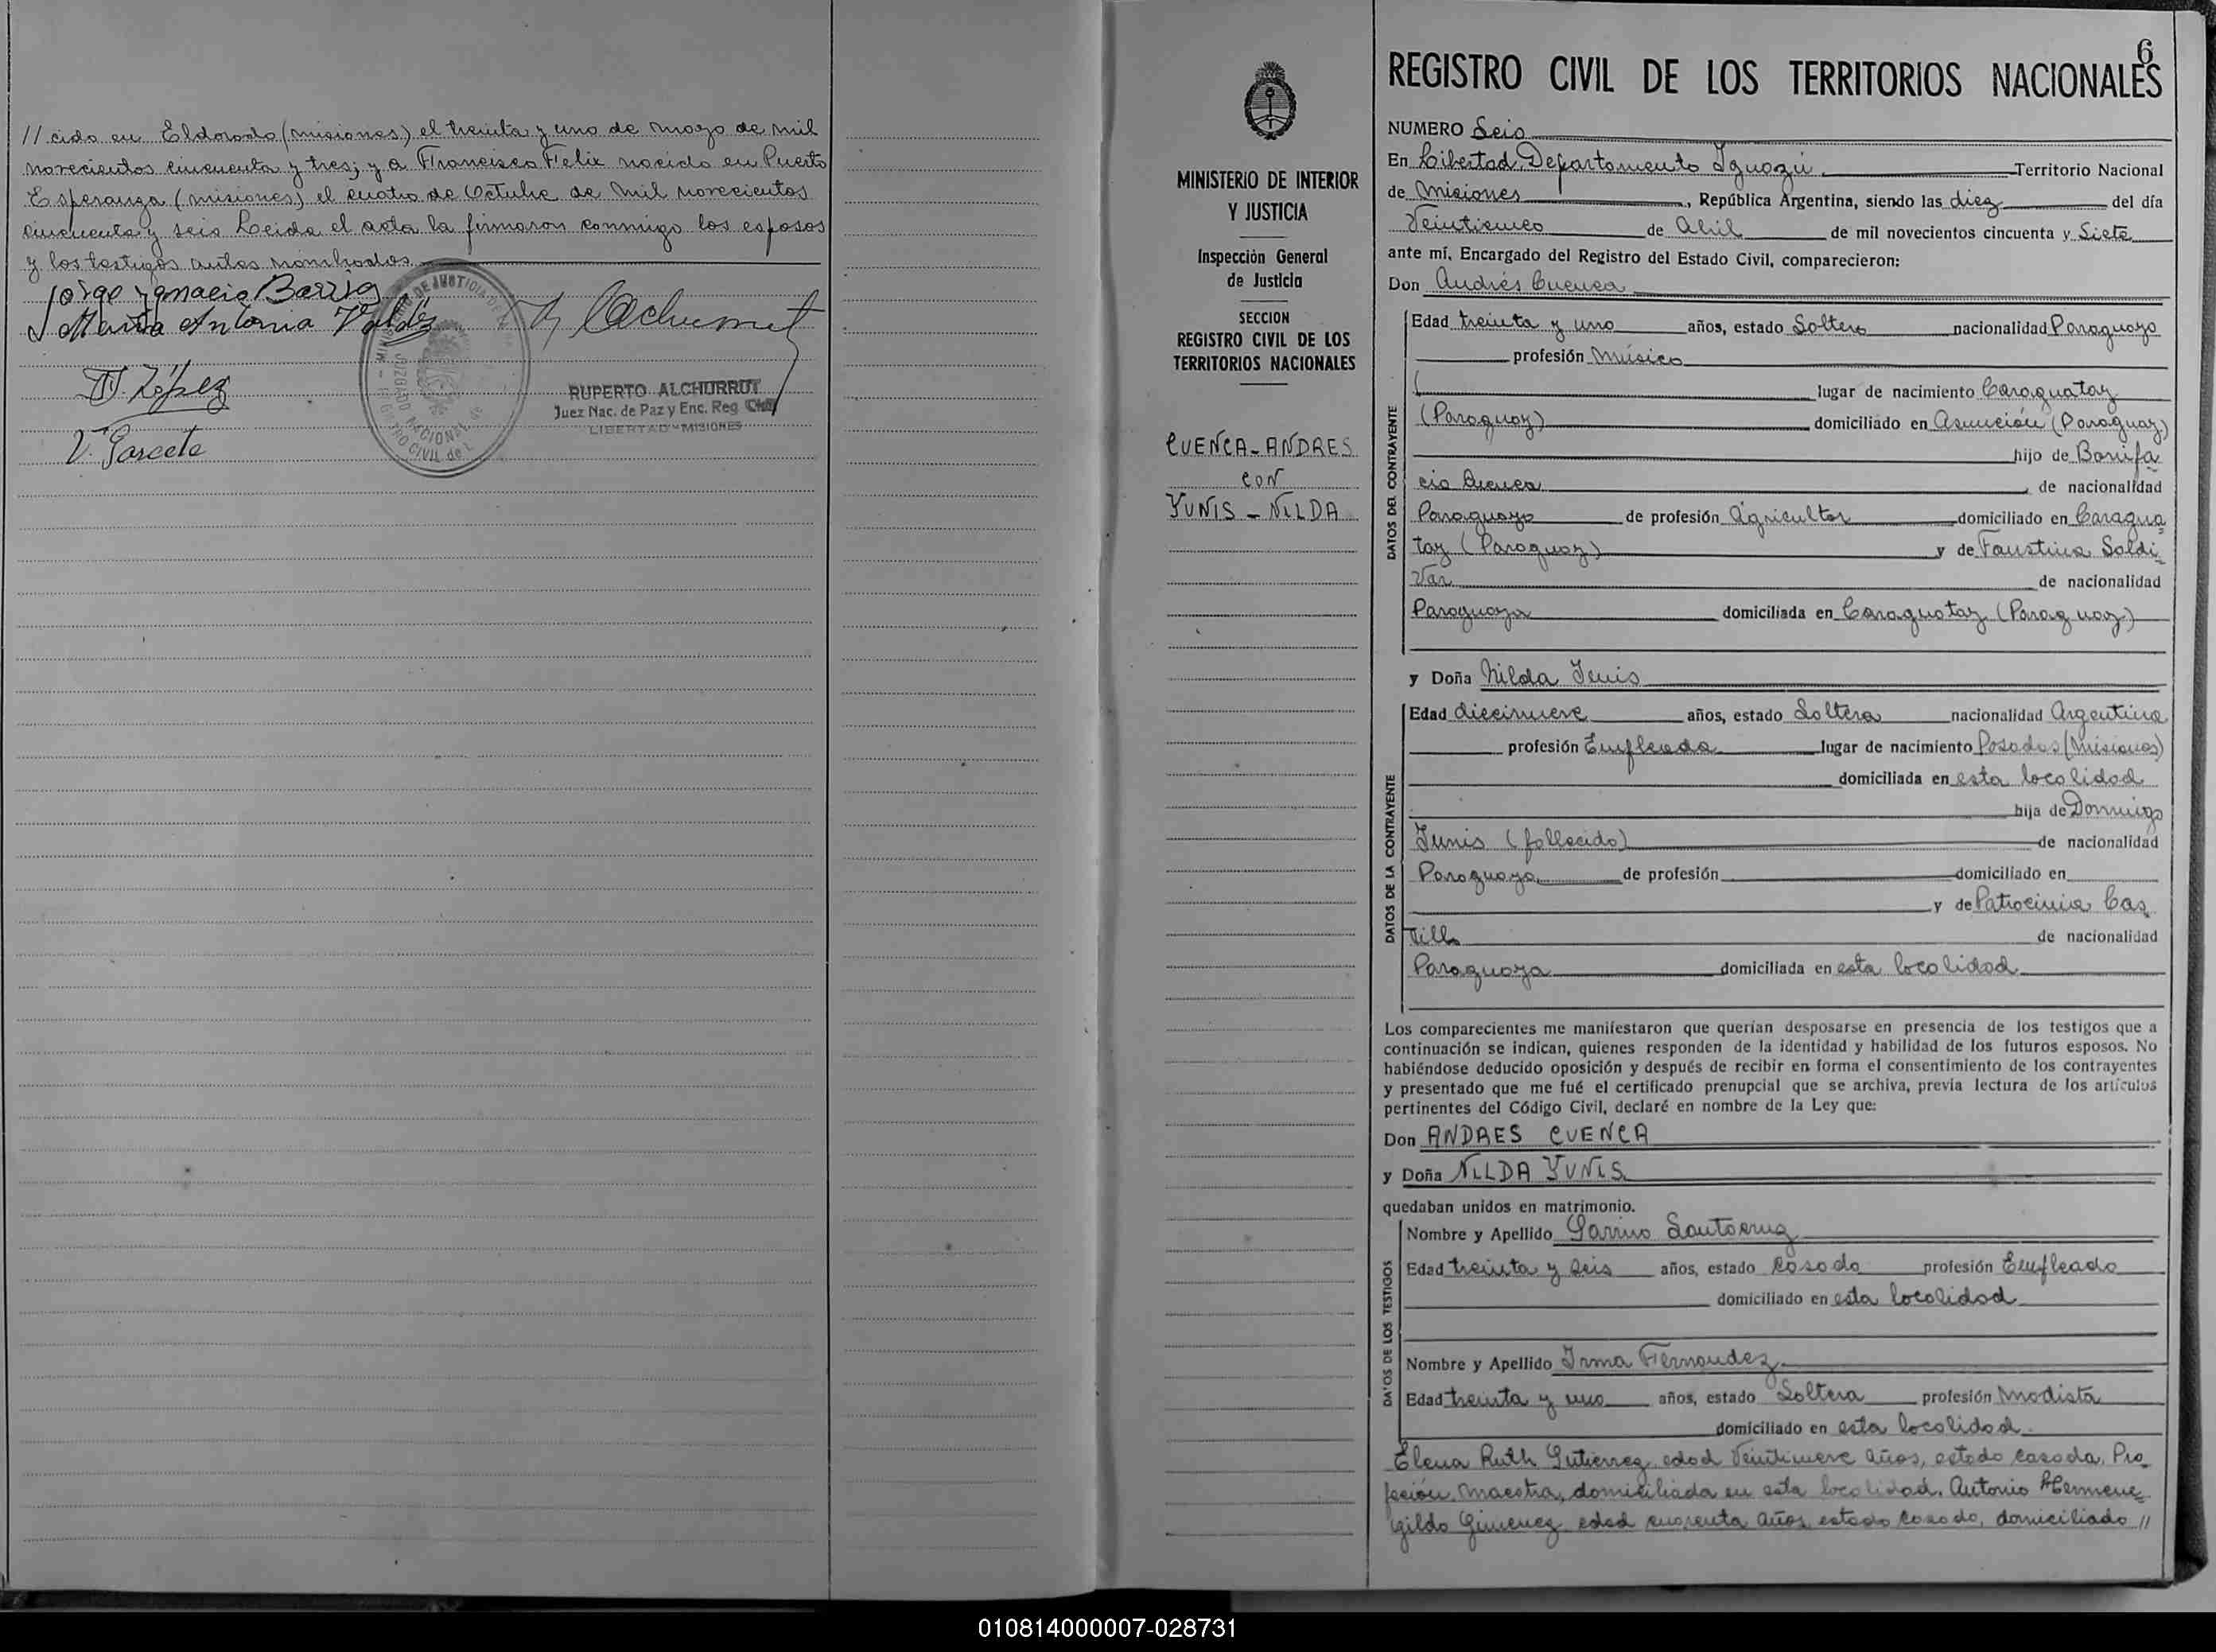 // cido en Eldorado (misiones) el treinta y uno de mayo de mil
novecientos cincuenta y tres; y a Francisco Felix nacido en Puerto
Esperanza (misiones) el cuatro de Octubre de mil novecientos
cincuenta y seis Leida el acta la firmaron conmigo los esposos
y los testigos antes nombrados
Jorge Ignacio Barrio
Maria Antonia Valdéz
López
V. Garcete
RUPERTO ALCHURRUT
Juez Nac. de Paz y Enc. Reg. Civil
LIBERTAD - MISIONES
MINISTERIO DE INTERIOR
Y JUSTICIA
Inspección General
de Justicia
SECCION
REGISTRO CIVIL DE LOS
TERRITORIOS NACIONALES
CUENCA - ANDRES
CON
YUNIS - NILDA
6
REGISTRO CIVIL DE LOS TERRITORIOS NACIONALES
NUMERO Seis
En Libertad, Departamento Iguazú Territorio Nacional
de Misiones, República Argentina, siendo las diez del día
Veinticinco de Abril de mil novecientos cincuenta y Siete
ante mí, Encargado del Registro del Estado Civil, comparecieron:
Don Andrés Cuenca
DATOS DEL CONTRAYENTE
Edad treinta y uno años, estado Soltero nacionalidad Paraguayo
profesión Músico
( lugar de nacimiento Caraguatay
(Paraguay) domiciliado en Asunción (Paraguay)
hijo de Bonifa
cio Cuenca, de nacionalidad
Paraguayo de profesión Agricultor domiciliado en Caragua
tay (Paraguay) y de Faustina Saldi
var de nacionalidad
Paraguaya domiciliada en Caraguatay (Paraguay)
y Doña Nilda Yunis
DATOS DE LA CONTRAYENTE
Edad diecinueve años, estado Soltera nacionalidad Argentina
profesión Empleada lugar de nacimiento Posadas (Misiones)
domiciliada en esta localidad
hija de Domingo
Yunis (fallecido) de nacionalidad
Paraguaya de profesión domiciliado en
y de Patrocinia Cas
tillo de nacionalidad
Paraguaya domiciliada en esta localidad
Los comparecientes me manifestaron que querían desposarse en presencia de los testigos que a
continuación se indican, quienes responden de la identidad y habilidad de los futuros esposos. No
habiéndose deducido oposición y después de recibir en forma el consentimiento de los contrayentes
y presentado que me fué el certificado prenupcial que se archiva, previa lectura de los artículos
pertinentes del Código Civil, declaré en nombre de la Ley que:
Don ANDRES CUENCA
y Doña NILDA YUNIS
quedaban unidos en matrimonio.
DATOS DE LOS TESTIGOS
Nombre y Apellido Santacruz
Edad treinta y seis años, estado casado profesión Empleado
domiciliado en esta localidad
Nombre y Apellido Irma Fernandez
Edad treinta y uno años, estado Soltera profesión Modista
domiciliado en esta localidad
Elena Ruth Gutierrez, edad Veintinueve años, estado casada, Pro
fesión, maestra, domiciliada en esta localidad. Antonio Hermene
gildo Gimenez edad cuarenta años, estado casado, domiciliado //
010814000007-028731